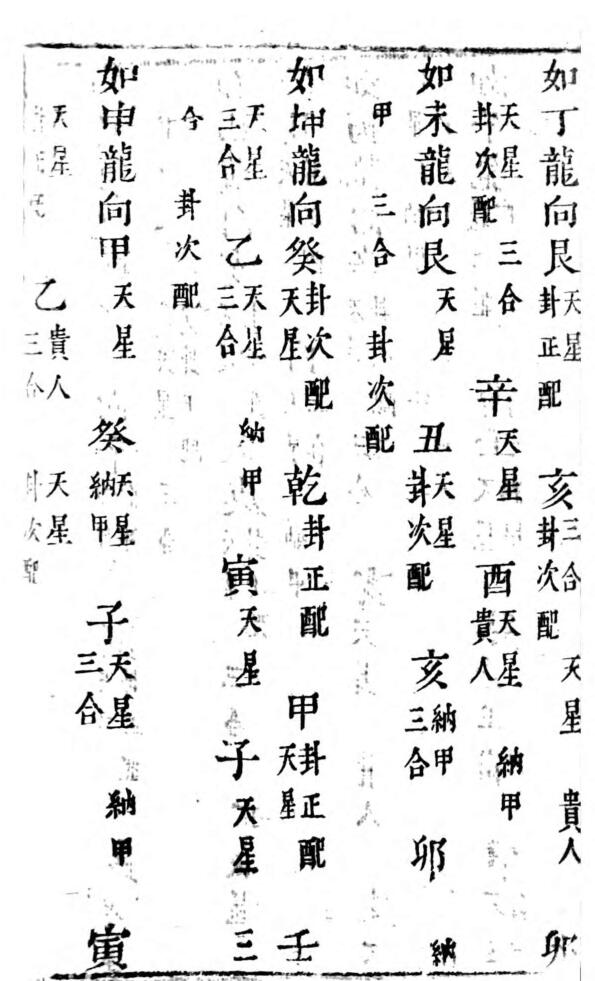 如丁龍向艮天星卦正配亥三合卦次配天星貴人卯
天星卦次配三合辛天星酉天星貴人納甲
如未龍向艮天星丑天星卦次配亥納甲三合卯納
甲三合卦次配
如坤龍向癸卦次配天星乾卦正配甲卦正配天星壬
天星三合乙天星三合納甲寅天星子天星三
今卦次配
如申龍向甲天星癸天星納甲子天星三合納甲寅
天星乙貴人三合天星卦次配